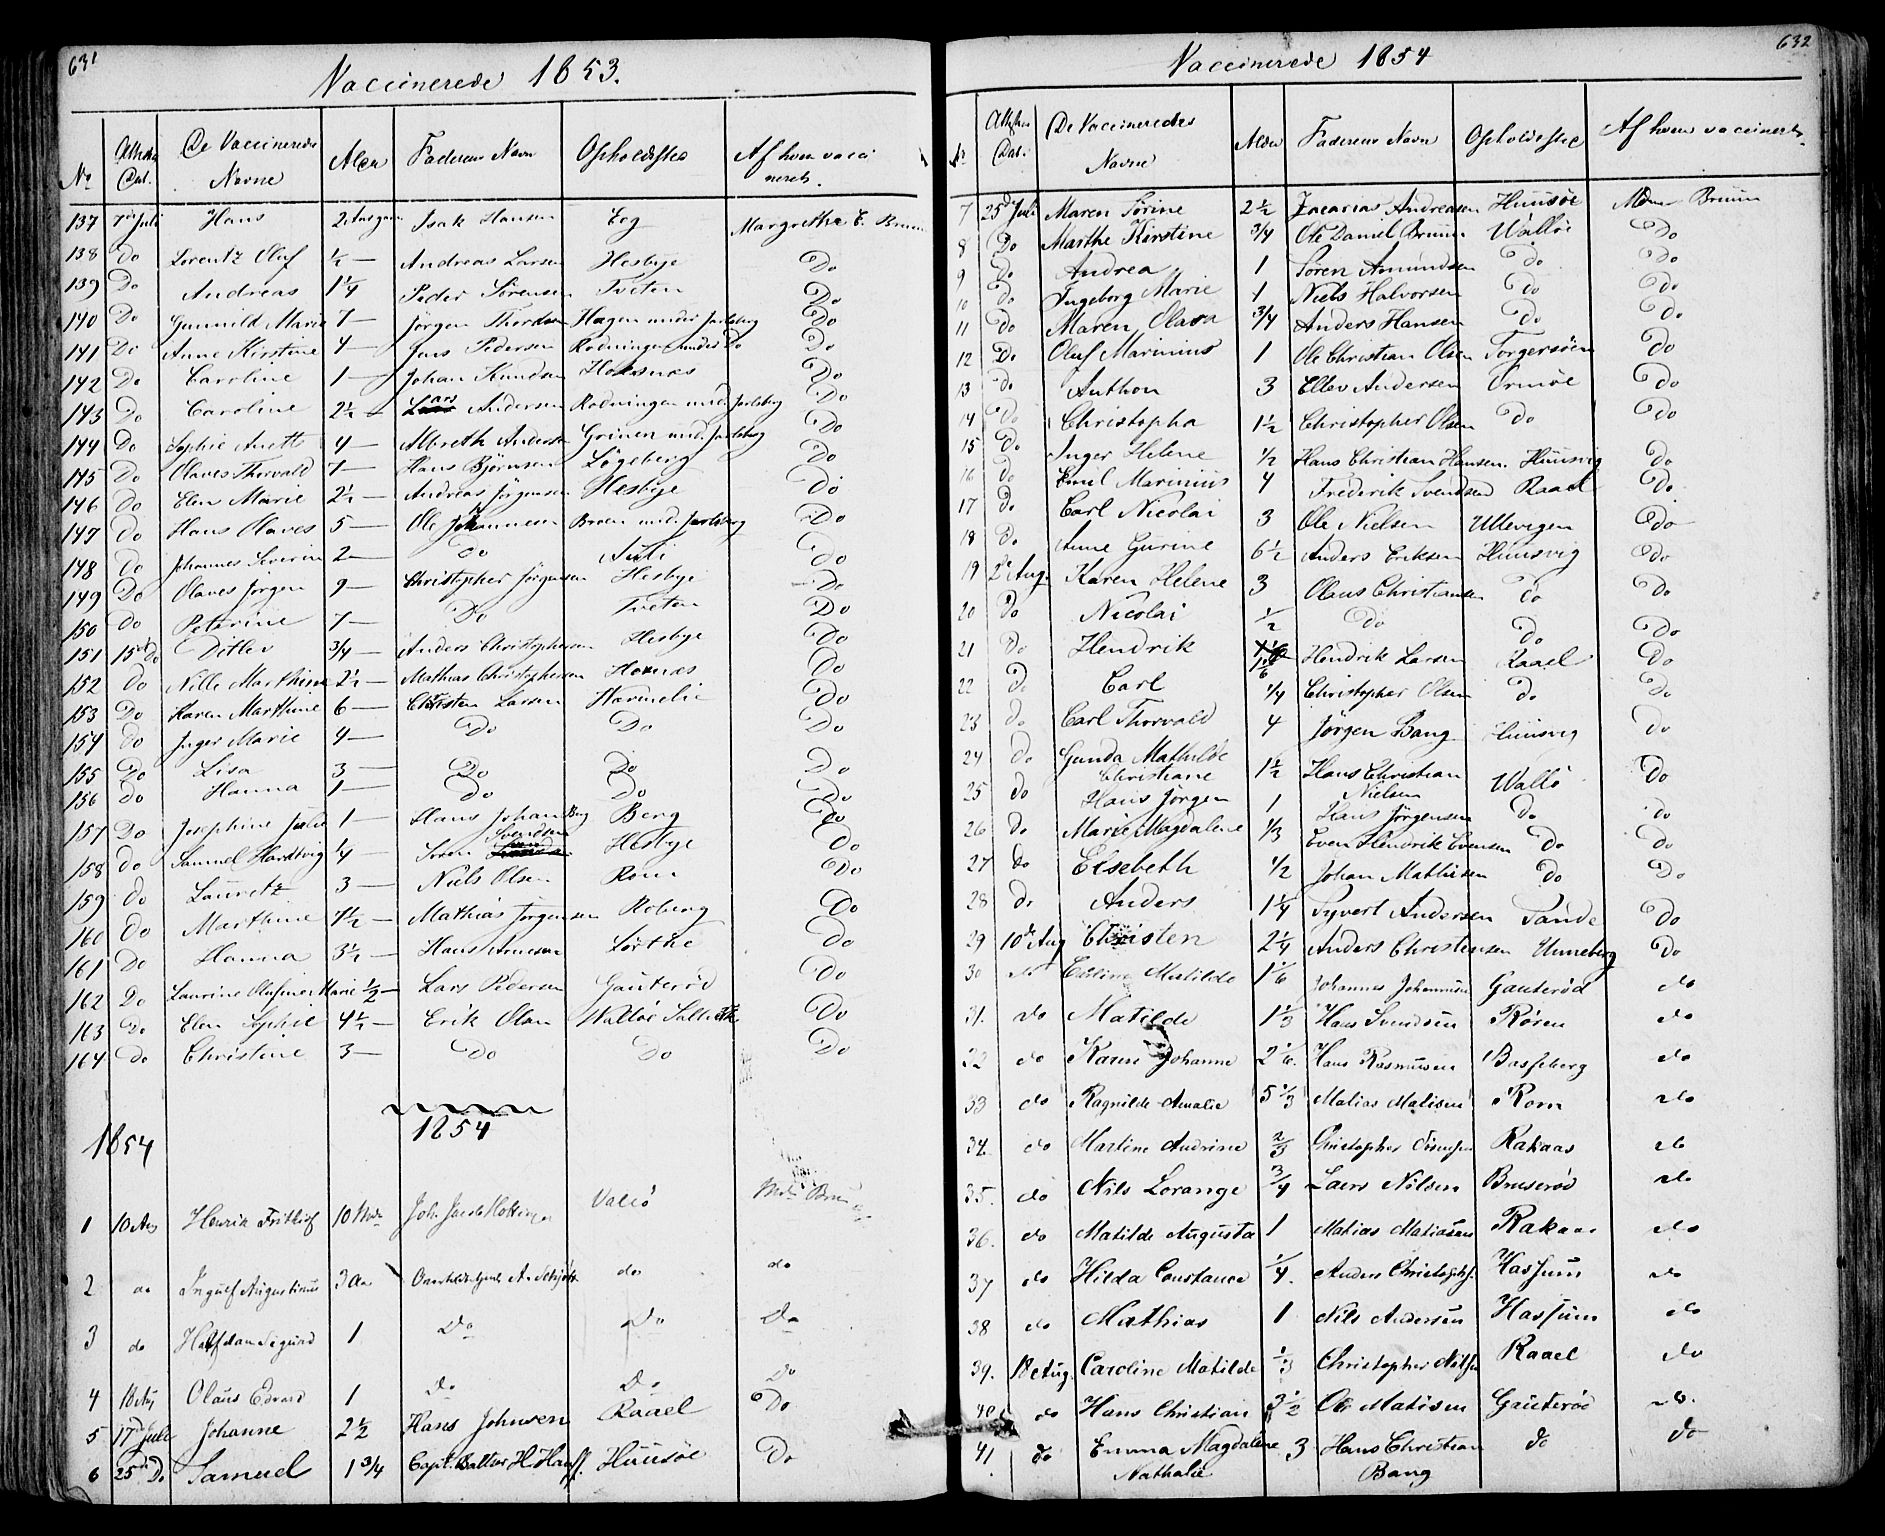 631
Vaccinerede 1853.
No Attestens Dat. De Vaccineredes Navne Alder Faderens Navn Opholdssted Af hvem vaccineret.
137 7de Juli Hans 2 Aar gam Isak Hansen Eeg Margrethe E. Bruun
138 Do Lorentz Oluf ½ — Andreas Larsen Hesbye Do
139 Do Andreas 1¼ Peder Sörensen Tveten Do
140 Do Gunnild Marie 7 — Jörgen Thordsen Hagen under Jarlsberg Do
141 Do Anne Kirstine 4 — Jens Pedersen Rodningen under Do Do
142 Do Caroline 1 — Johan Knudsen Do
143 Do Caroline 2½ — Lars Andersen Rodningen und. Jarlsberg Do
144 Do Sophie Anette 4 — Albreth Andersen Grinen und. Jarlsberg Do
145 Do Olaves Thorvald 7 — Hans Björnsen Lögeberg Do
146 Do Elen Marie 2½ — Andreas Jörgensen Hesbye Do
147 Do Hans Olaves 5 — Ole Johannesen Broen und. Jarlsberg Do
148 Do Johannes Severin 2 — Do Do
149 Do Olaves Jorgen 9 — Christopher Jörgensen Hesbye Do
150 Do Peterine 7 — Do Tveten Do
151 15de Do Ditlev ¾ — Anders Christophersen Hesbye Do
152 Do Nille Marthine 2½ — Mathias Christophersen Do
153 Do Karen Marthine 6 — Christen Larsen Do
154 Do Inger Marie 4 — Do Do Do
155 Do Lisa 3 — Do Do Do
156 Do Hanna 1 — Do Do Do
157 Do Josephine Julie 1 — Hans Johan Berg Berg Do
158 Do Samuel Hardtvig ¼ — Sören Svendsen Hesbye Do
159 Do Lauretz 3 — Niels Olsen Rom Do
160 Do Marthine 4½ — Mathias Jorgensen Roberg Do
161 Do Hanna 3½ — Hans Do
162 Do Laurine Olufine Marie ½ — Lars Pedersen Gauteröd Do
163 Do Elen Sophie 4½ — Erik Olsen Walløe Do
164 Do Christine 3 — Do Do Do
1854
1854
1 10 Aug Henrik Frithiof 10 Mdr Joh. Jacob Valiö Mad. Bruun
2 do Ingulf Augustinus 3 Aar do do
3 do Halfdan Sigurd 1 Do Do Do
4 18 Aug Olaus Edvard 1 do Do Do
5 17de Juli Johanne 2½ Hans Johnsen Raael Do
6 25de Do Samuel 1¾ Capt. Balthzar H. Hanff. Huusöe Do
632
Vaccinerede 1854
No Attestens Dat. De Vaccineredes Navne Alder Faderens Navn Opholdssted Af hvem vaccineret.
7 25de Juli Maren Sörine 2½ Zacarias Andreasen Huusöe Mdme Bruun
8 Do Marthe Kirstine ¾ Ole Daniel Bruun Walløe Do
9 Do Andrea 1 Sören Amundsen Do Do
10 Do Ingeborg Marie 1 Niels Halvorsen Do Do
11 Do Maren Olava ¾ Anders Hansen Do Do
12 Do Oluf Marinius 1 Ole Christian Olsen Torgersöen Do
13 Do Anthon 3 Ellev Andersen Ormöe Do
14 Do Christopha 1½ Christopher Olsen Do Do
15 Do Inger Helene ½ Hans Christian Hansen. Huusvig Do
16 Do Emil Marinius 4 Frederik Svendsen Raael Do
17 Do Carl Nicolai 3 Ole Nielsen Ullevigen Do
18 Do Anne Gurine 6½ Anders Eriksen Huusvig Do
19 2de Aug. Karen Helene 3 Olaus Christiansen Do Do
20 Do Nicolai ½ Do Do Do
21 Do Hendrik 1⅙ Hendrik Larsen Raael Do
22 Do Carl ¼ Christopher Olsen Do Do
23 Do Carl Thorvald 4 Jörgen Bang Huusvig Do
24 do Gunda Mathilde Christiane 1½ Hans Christian Nielsen Wallö Do
25 do Hans Jörgen 1 Hans Jörgensen Do do
26 do Marie Magdalene ⅓ Even Hendrik Evensen Do Do
27 do Elsebeth ½ Johan Mathisen Do Do
28 do Anders 1¼ Syvert Andersen Sande Do
29 10de Aug Christen 2¼ Anders Christensen Unneberg Do
30 do Elline Matilde 1⅙ Johannes Johannesen Gauteröd do
31. do Matilde 1⅓ Hans Svendsen Rören do
32 do Karen Johanne 2⅙. Hans Rasmussen Basseberg do
33 do Ragnilde Amalie 5⅓ Matias Matisen Rom do
34. do Martine Andrine ⅔ Christopher Rakaas do
35. do Nils Lorange ¾ Laers Nilsen Bruseröd do
36. do Matilde Augusta 1 Matias Matiasen Rakaas do
37 do Hilda Constance ¼. Anders Christophs. Hassum do
38 do Mathias 1 Nils Andersen Hassum do
39. 18 Aug. Caroline Matilde ⅓ Christopher Nilsen Raael do
40 do Hans Christian 3½ Ole Matisen Gauteröd do.
41 do Emma Magdalene Nathalie 3 Hans Christian Bang do do